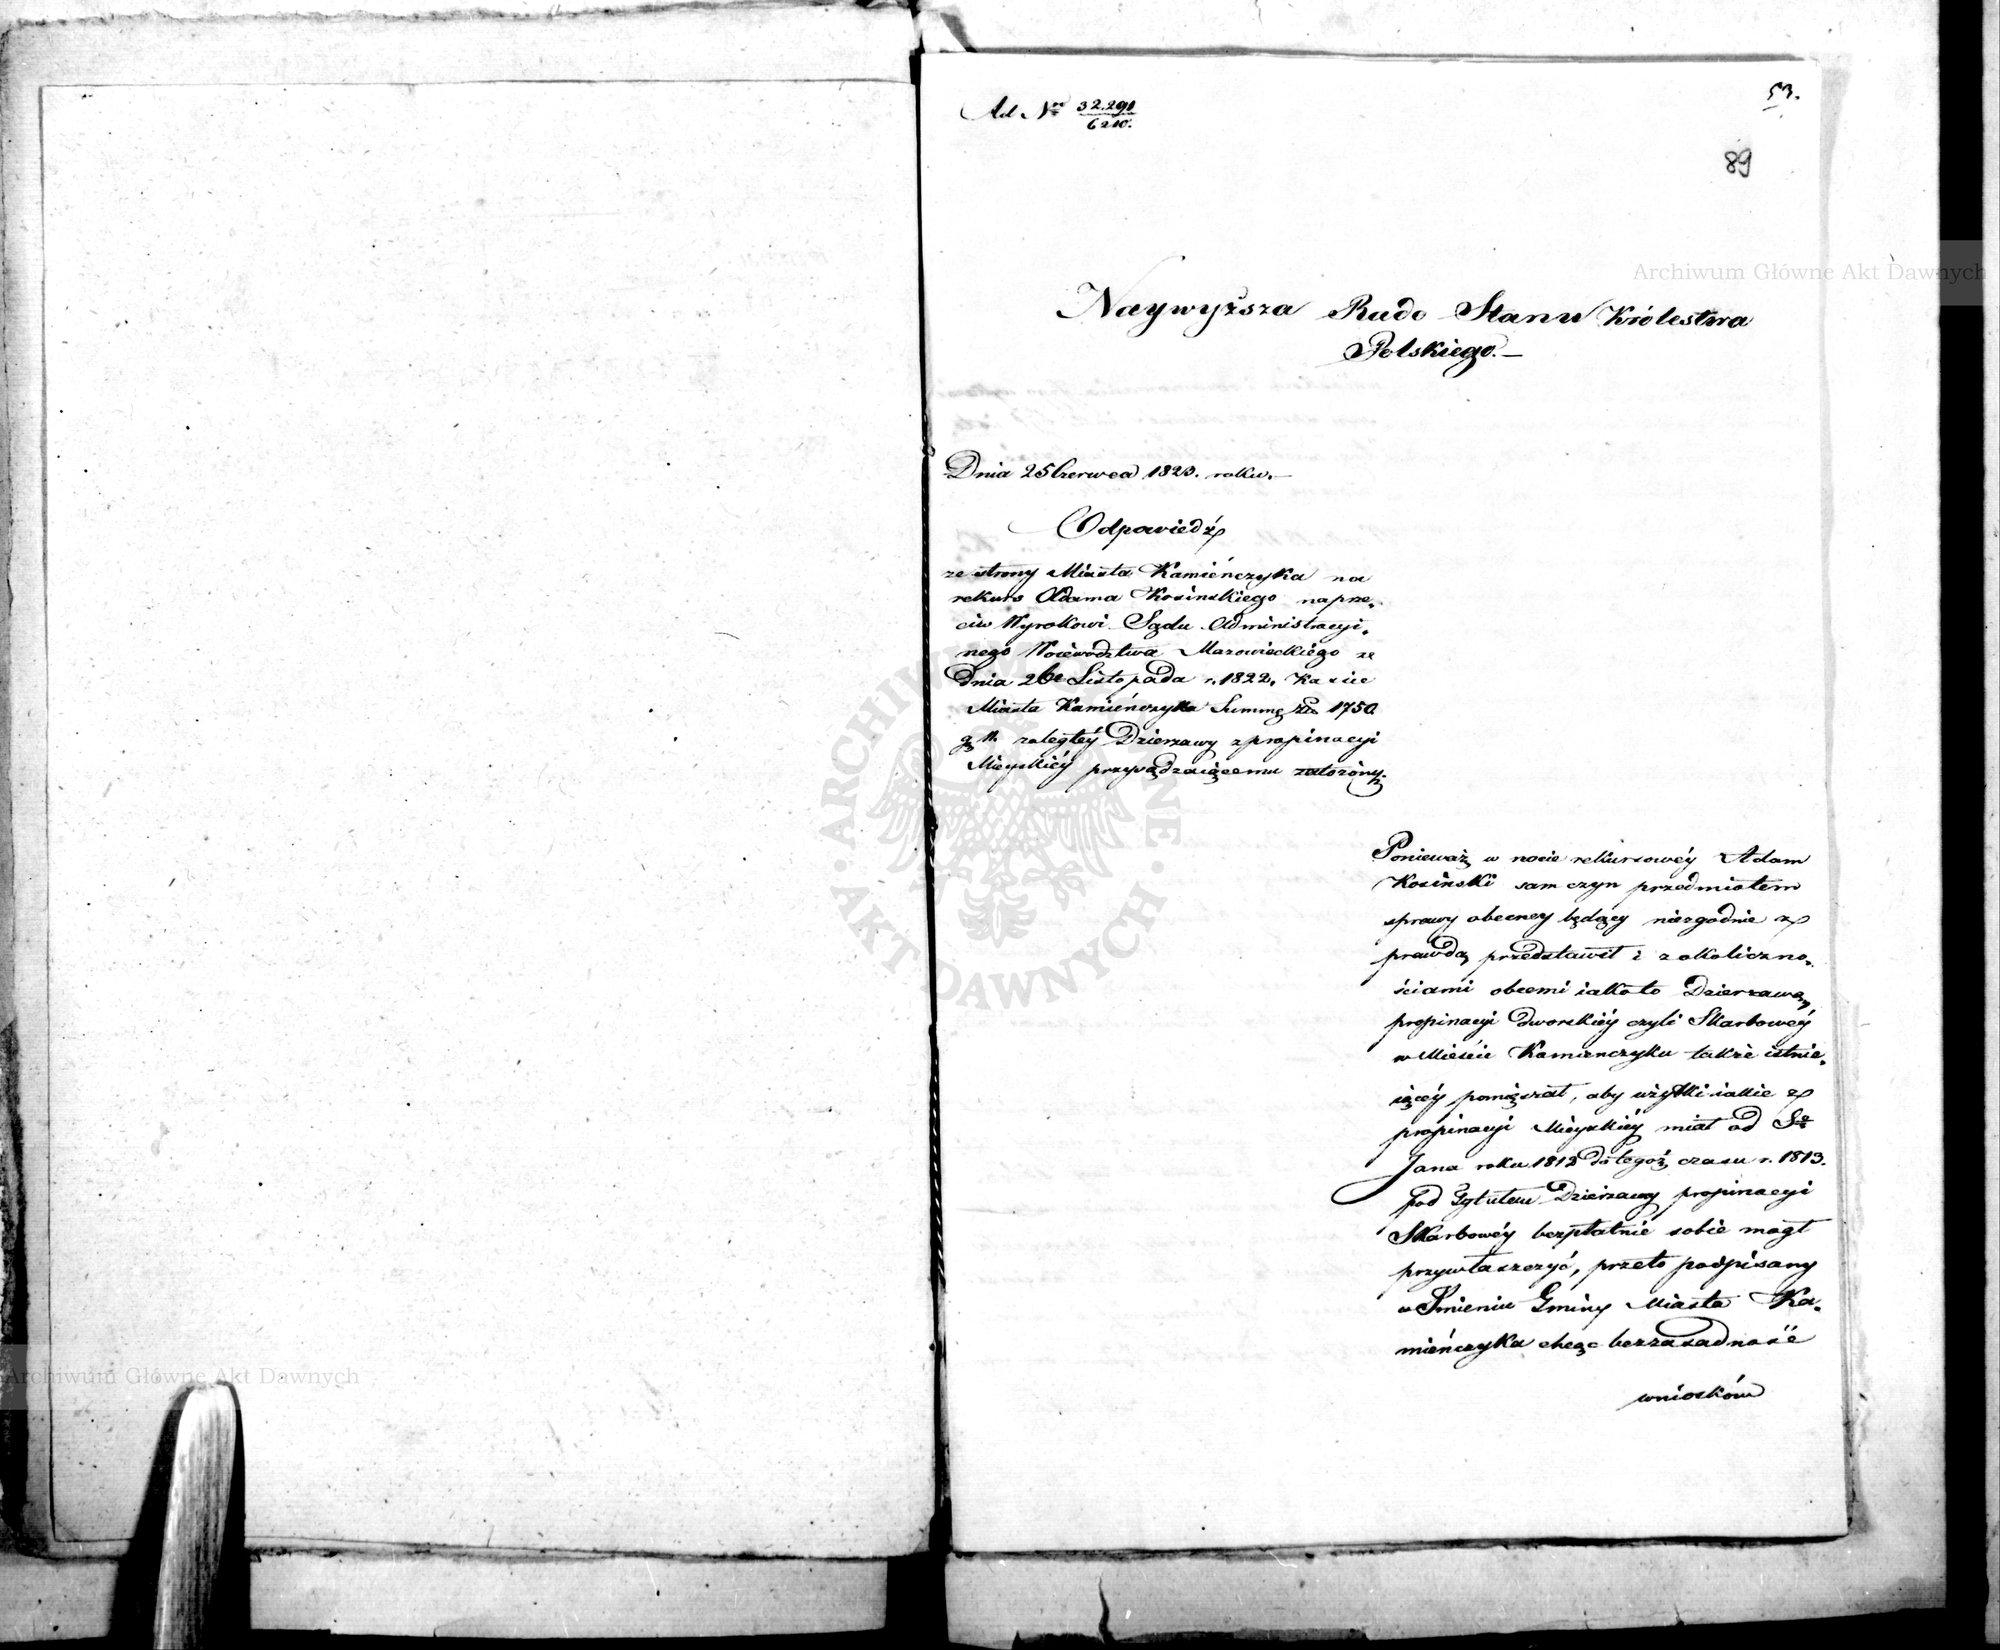 Ad Nr 32.291
6210.
53.
89
Naywyższa Rado Stanu Królestwa
Polskiego. —
Dnia 25 Czerwca 1823. roku. —
Odpowiedź
ze strony Miasta Kamieńczyka na
rekurs Adama Kosinskiego naprze„
ciw Wyrokowi Sądu Administracyi„
nego Woiewództwa Mazowieckiego ze
Dnia 26 Listopada r. 1822. Kassie
Miasta Kamieńczyka Summę Złp 1750
g zaległéy Dzierzawy z propinacyi
Mieyskiéy przysądzaiącemu założony.
Ponieważ w nocie rekursowéy Adam
Kosinski sam czyn przedmiotem
sprawy obecney będący niezgodnie z
prawdą przedstawił i z okoliczno„
ściami obcemi iako to Dzierzawą
propinacyi dworskiéy czyli Skarbowéy
w Mieście Kamienczyku także istnie„
iącéy pomięszał, aby użytki iakie z
propinacyi Mieyskiéy miał od Sgo
Jana roku 1812 do tegoż czasu r. 1813.
pod Tytułem Dzierzawy propinacyi
Skarbowéy bezpłatnie sobie mógł
przywłaszczyć, przeto podpisany
w Imieniu Gminy Miasta Ka„
mieńczyka chcąc bezzasadność
wniosków
Archiwum Główne Akt Dawnych
Archiwum Główne Akt Dawnych
ARCHIWUM GŁÓWNE AKT DAWNYCH